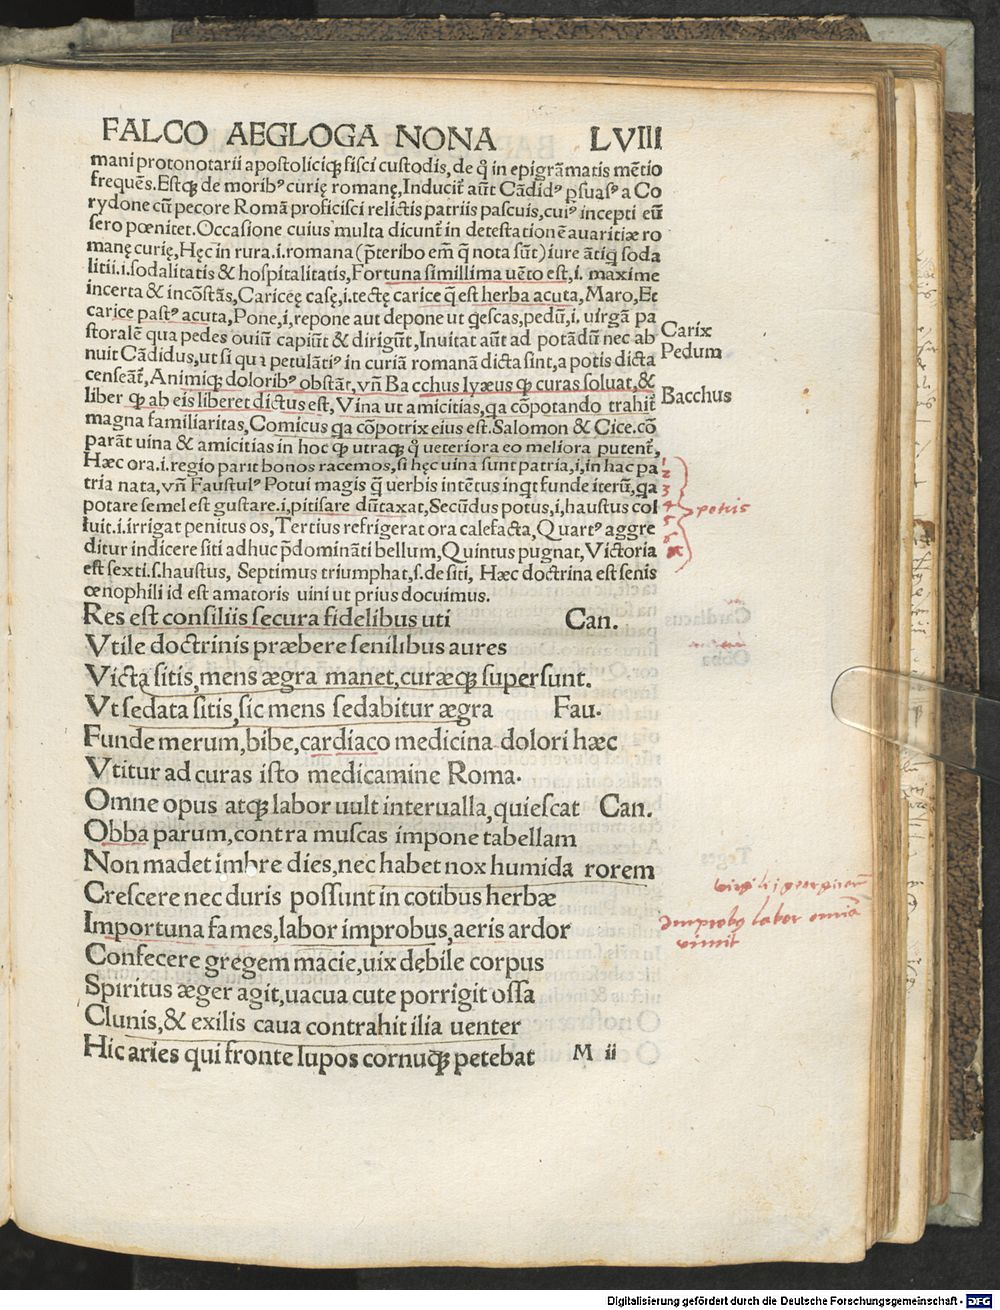 FALCO AEGLOGA NONA LVIII
mani protonotarii apostoliciqꝫ fisci custodis, de q̊ in epigrãmatis mẽtio
frequẽs. Estqꝫ de moribꝰ curię romanę, Inducit᷑ aũt Cãdidꝰ ꝑsuasꝰ a Co
rydone cũ pecore Romã proficisci relictis patriis pascuis, cuiꝰ incepti eũ
sero pœnitet. Occasione cuius multa dicunt᷑ in detestationẽ auaritiæ ro
manę curię, Hęc in rura .i. romana (p̃teribo em̃ q̃ nota sũt) iure ãtiq̊ soda
litii .i. sodalitatis & hospitalitatis, Fortuna simillima uẽto est, i. maxime
incerta & incõstãs, Cariceę casę, i. tectę carice q̃ est herba acuta, Maro, Et
carice pastꝰ acuta, Pone, i, repone aut depone ut q̇escas, pedũ, i. uirgã pa
storalẽ qua pedes ouiũ capiũt & dirigũt, Inuitat aũt ad potãdũ nec ab
Carix
nuit Cãdidus, ut si qua petulãtiꝰ in curiã romanã dicta sint, a potis dicta
Pedum
censeãt᷑, Animiqꝫ doloribꝰ obstãt, vñ Bacchus lyæus ꝙ curas soluat, &
liber ꝙ ab eis liberet dictus est, Vina ut amicitias, qa cõpotando trahit᷑
Bacchus
magna familiaritas, Comicus qa cõpotrix eius est. Salomon & Cice. cõ
parãt uina & amicitias in hoc ꝙ utraqꝫ q̊ ueteriora eo meliora putent᷑,
Hæc ora .i. regio parit bonos racemos, si hęc uina sunt patria, i, in hac pa
tria nata, vñ Faustulꝰ Potui magis q̃ uerbis intẽtus inq̇t funde iterũ, qa
potare semel est gustare .i, pitisare dũtaxat, Secũdus potus, i, haustus col
luit .i. irrigat penitus os, Tertius refrigerat ora calefacta, Quartꝰ aggre
ditur indicere siti adhuc p̃dominãti bellum, Quintus pugnat, Victoria
est sexti .s. haustus, Septimus triumphat, s. de siti, Hæc doctrina est senis
œnophili id est amatoris uini ut prius docuimus.
1
2
3
4
5
6
potus
Res est consiliis secura fidelibus uti Can.
Vtile doctrinis præbere senilibus aures
Victa sitis, mens ægra manet, curæqꝫ supersunt.
Vt sedata sitis, sic mens sedabitur ægra Fau.
Funde merum, bibe, cardiaco medicina dolori hæc
Vtitur ad curas isto medicamine Roma.
Omne opus atqꝫ labor uult interualla, quiescat Can.
Obba parum, contra muscas impone tabellam
Non madet imbre dies, nec habet nox humida rorem
Crescere nec duris possunt in cotibus herbæ
virgili j georgicorum
Importuna fames, labor improbus, aeris ardor
improbꝰ labor omnia
vimit
Confecere gregem macie, uix dębile corpus
Spiritus æger agit, uacua cute porrigit ossa
Clunis, & exilis caua contrahit ilia uenter
Hic aries qui fronte lupos cornuqꝫ petebat M ii
Digitalisierung gefördert durch die Deutsche Forschungsgemeinschaft - DFG